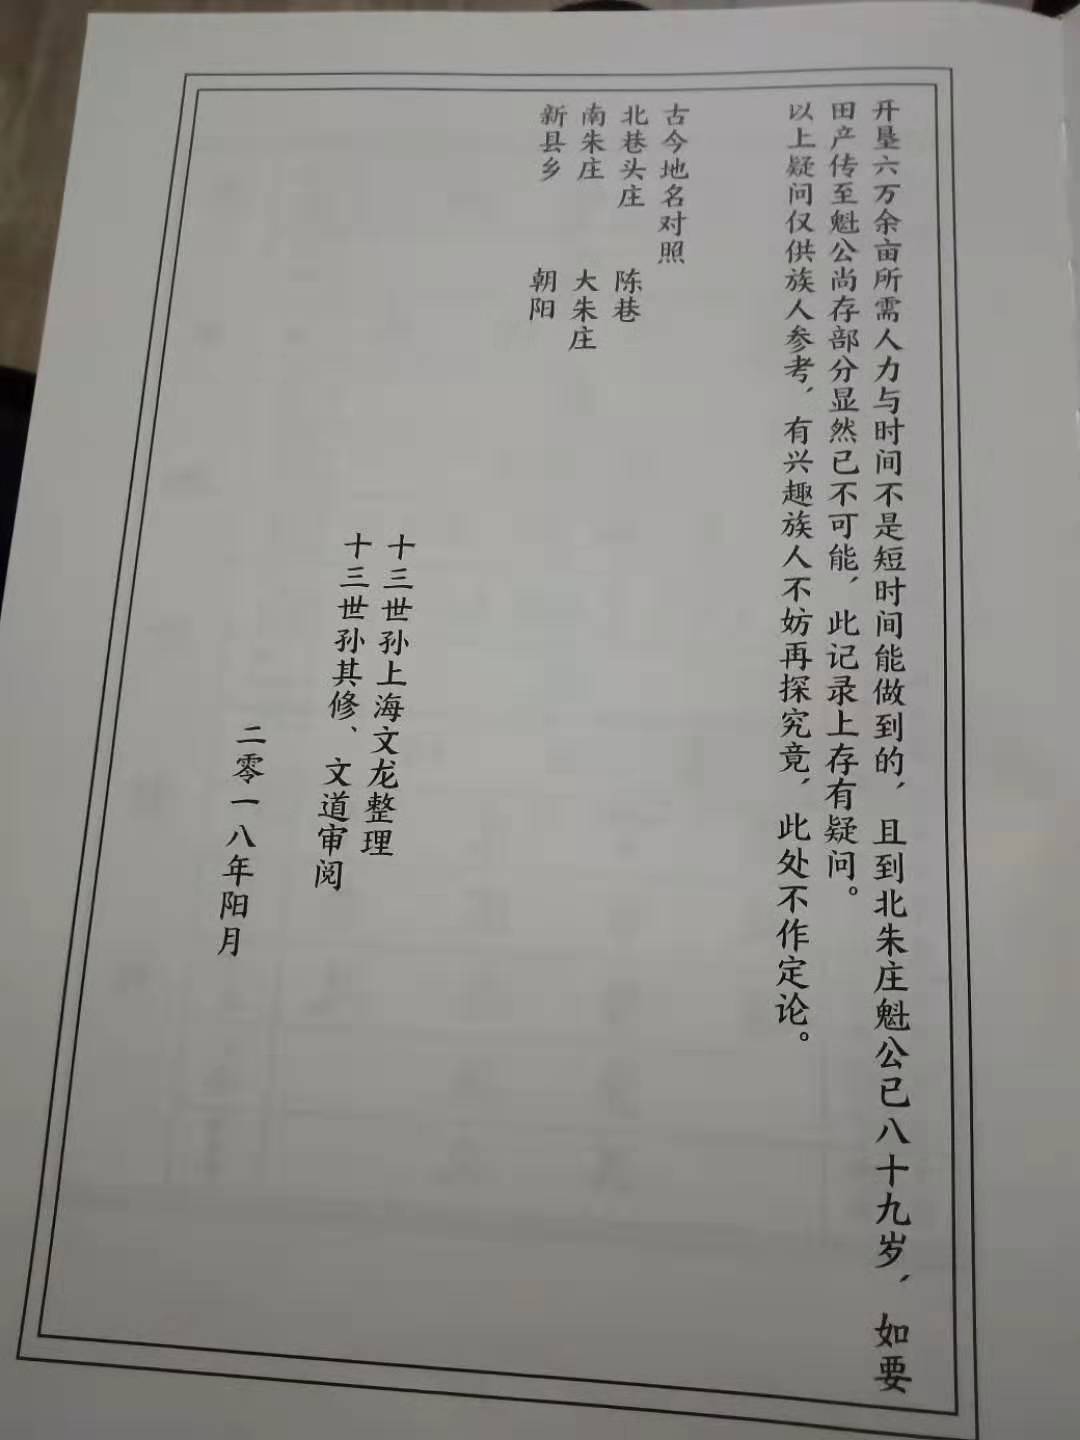 开垦六万余亩所需人力与时间不是短时间能做到的，且到北朱庄魁公已八十九岁，如要
田产传至魁公尚存部分显然已不可能，此记录上存有疑问。
以上疑问仅供族人参考，有兴趣族人不妨再探究竟，此处不作定论。
古今地名对照
北巷头庄 陈巷
南朱庄 大朱庄
新县乡 朝阳
十三世孙上海文龙整理
十三世孙其修、文道审阅
二零一八年阳月